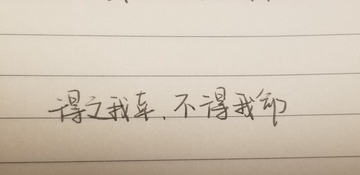 得之我幸,不得我命